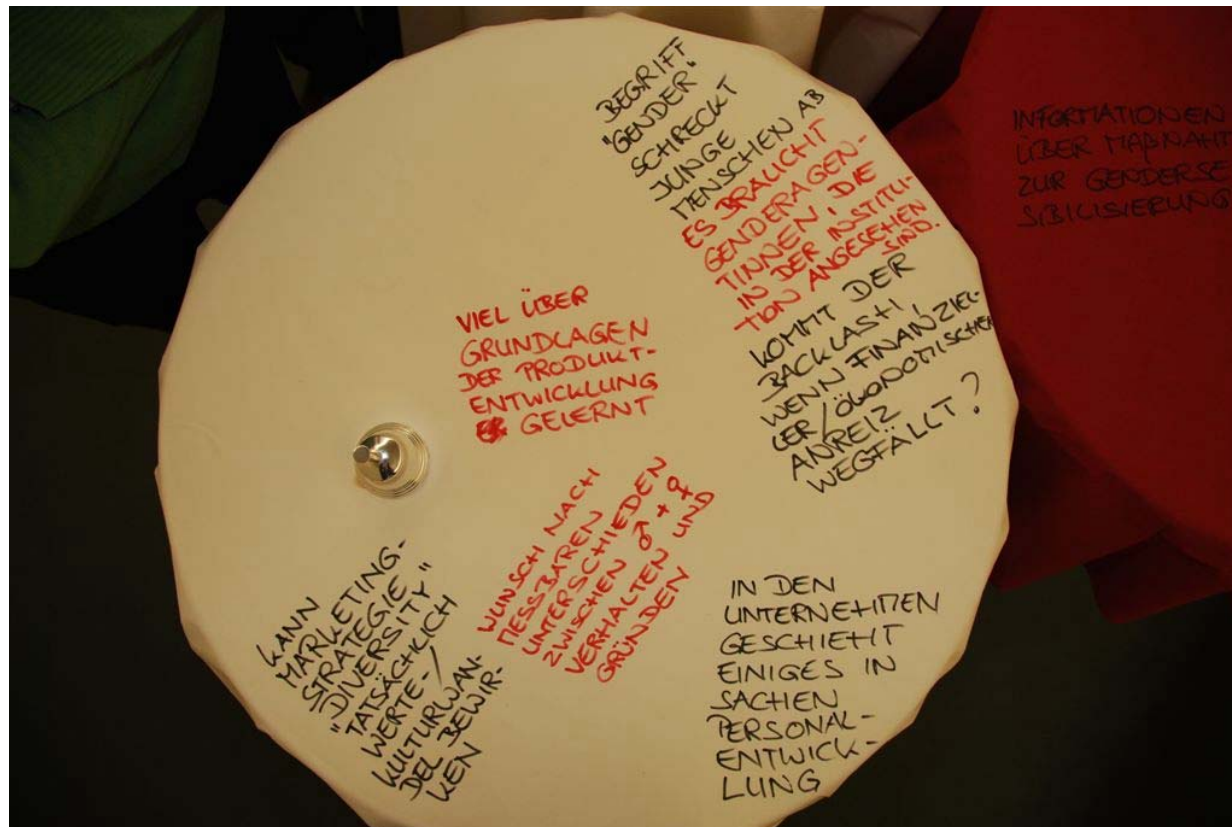 BEGRIFF
"GENDER"
SCHRECKT
JUNGE
MENSCHEN AB
ES BRAUCHT
GENDERAGEN-
TINNEN, DIE
IN DER INSTITU-
TION ANGESEHEN
SIND.
KOMMT DER
BACKLASH,
WENN FINANZIEL-
LER/ÖKONOMISCHER
ANREIZ
WEGFÄLLT?
VIEL ÜBER
GRUNDLAGEN
DER PRODUKT-
ENTWICKLUNG
GELERNT
WUNSCH NACH
MESSBAREN
UNTERSCHIEDEN
ZWISCHEN ♂ + ♀
VERHALTEN UND
GRÜNDEN
KANN
MARKETING-
STRATEGIE
"DIVERSITY"
TATSÄCHLICH
WERTE-/
KULTURWAN-
DEL BEWIR-
KEN
IN DEN
UNTERNEHMEN
GESCHIEHT
EINIGES IN
SACHEN
PERSONAL-
ENTWICK-
LUNG
INFORMATIONEN
ÜBER MAßNAHM
ZUR GENDERSE
SIBILISIERUNG